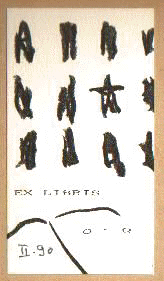 EX LIBRIS
O. Q
II-90